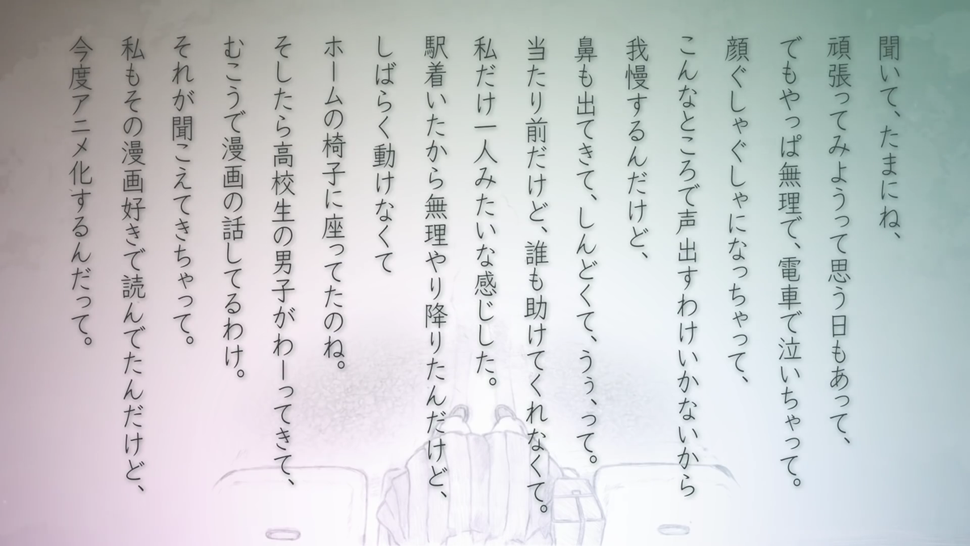 聞いて、たまにね、
頑張ってみようって思う日もあって、
でもやっぱ無理で、電車で泣いちゃって。
顔ぐしゃぐしゃになっちゃって、
こんなところで声出すわけいかないから
我慢するんだけど、
鼻も出てきて、しんどくて、うぅ、って。
当たり前だけど、誰も助けてくれなくて。
私だけ一人みたいな感じした。
駅着いたから無理やり降りたんだけど、
しばらく動けなくて
ホームの椅子に座ってたのね。
そしたら高校生の男子がわーってきて、
むこうで漫画の話してるわけ。
それが聞こえてきちゃって。
私もその漫画好きで読んでたんだけど、
今度アニメ化するんだって。